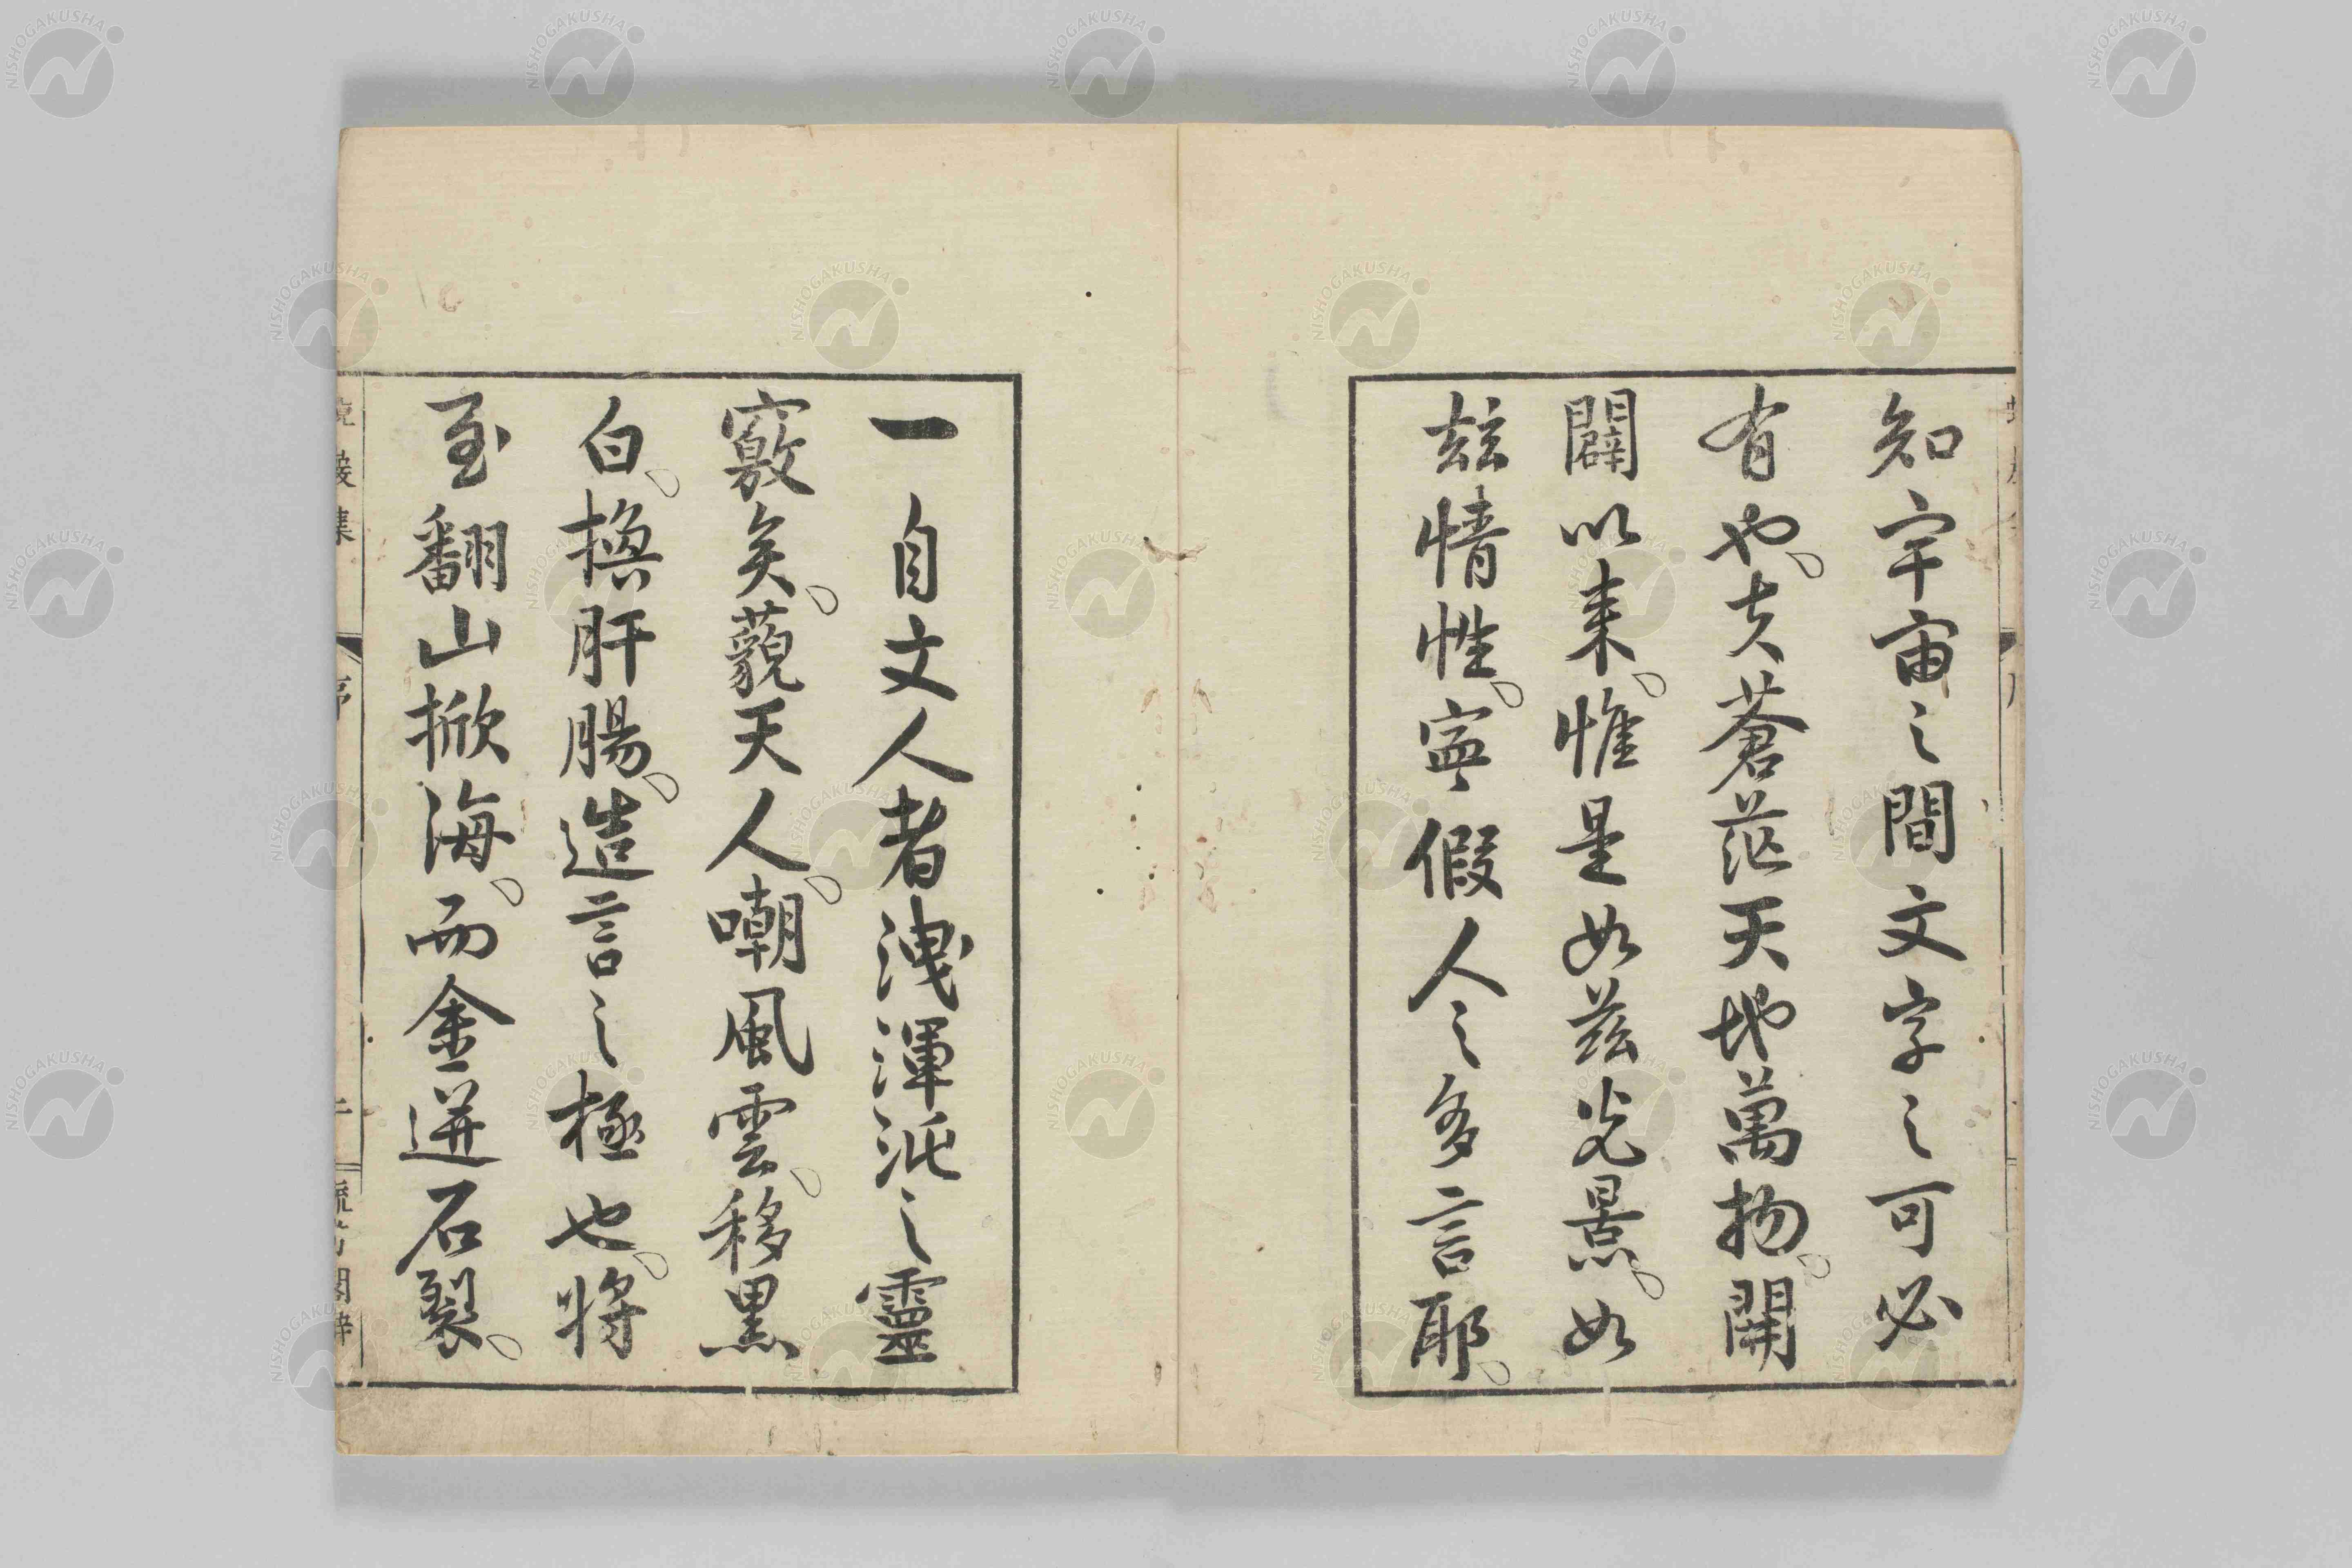 知宇宙之間文字之可必
有也。夫蒼茫天地萬物。開
闢以来。惟是如茲光景。如
玆情性。寧假人之多言耶。
一自文人者洩渾沌之靈
竅矣。藐天人。嘲風雲。移黒
白。換肝腸。造言之極也。将
至翻山掀海。而金迸石裂。
集
序
NISHOGAKUSHA